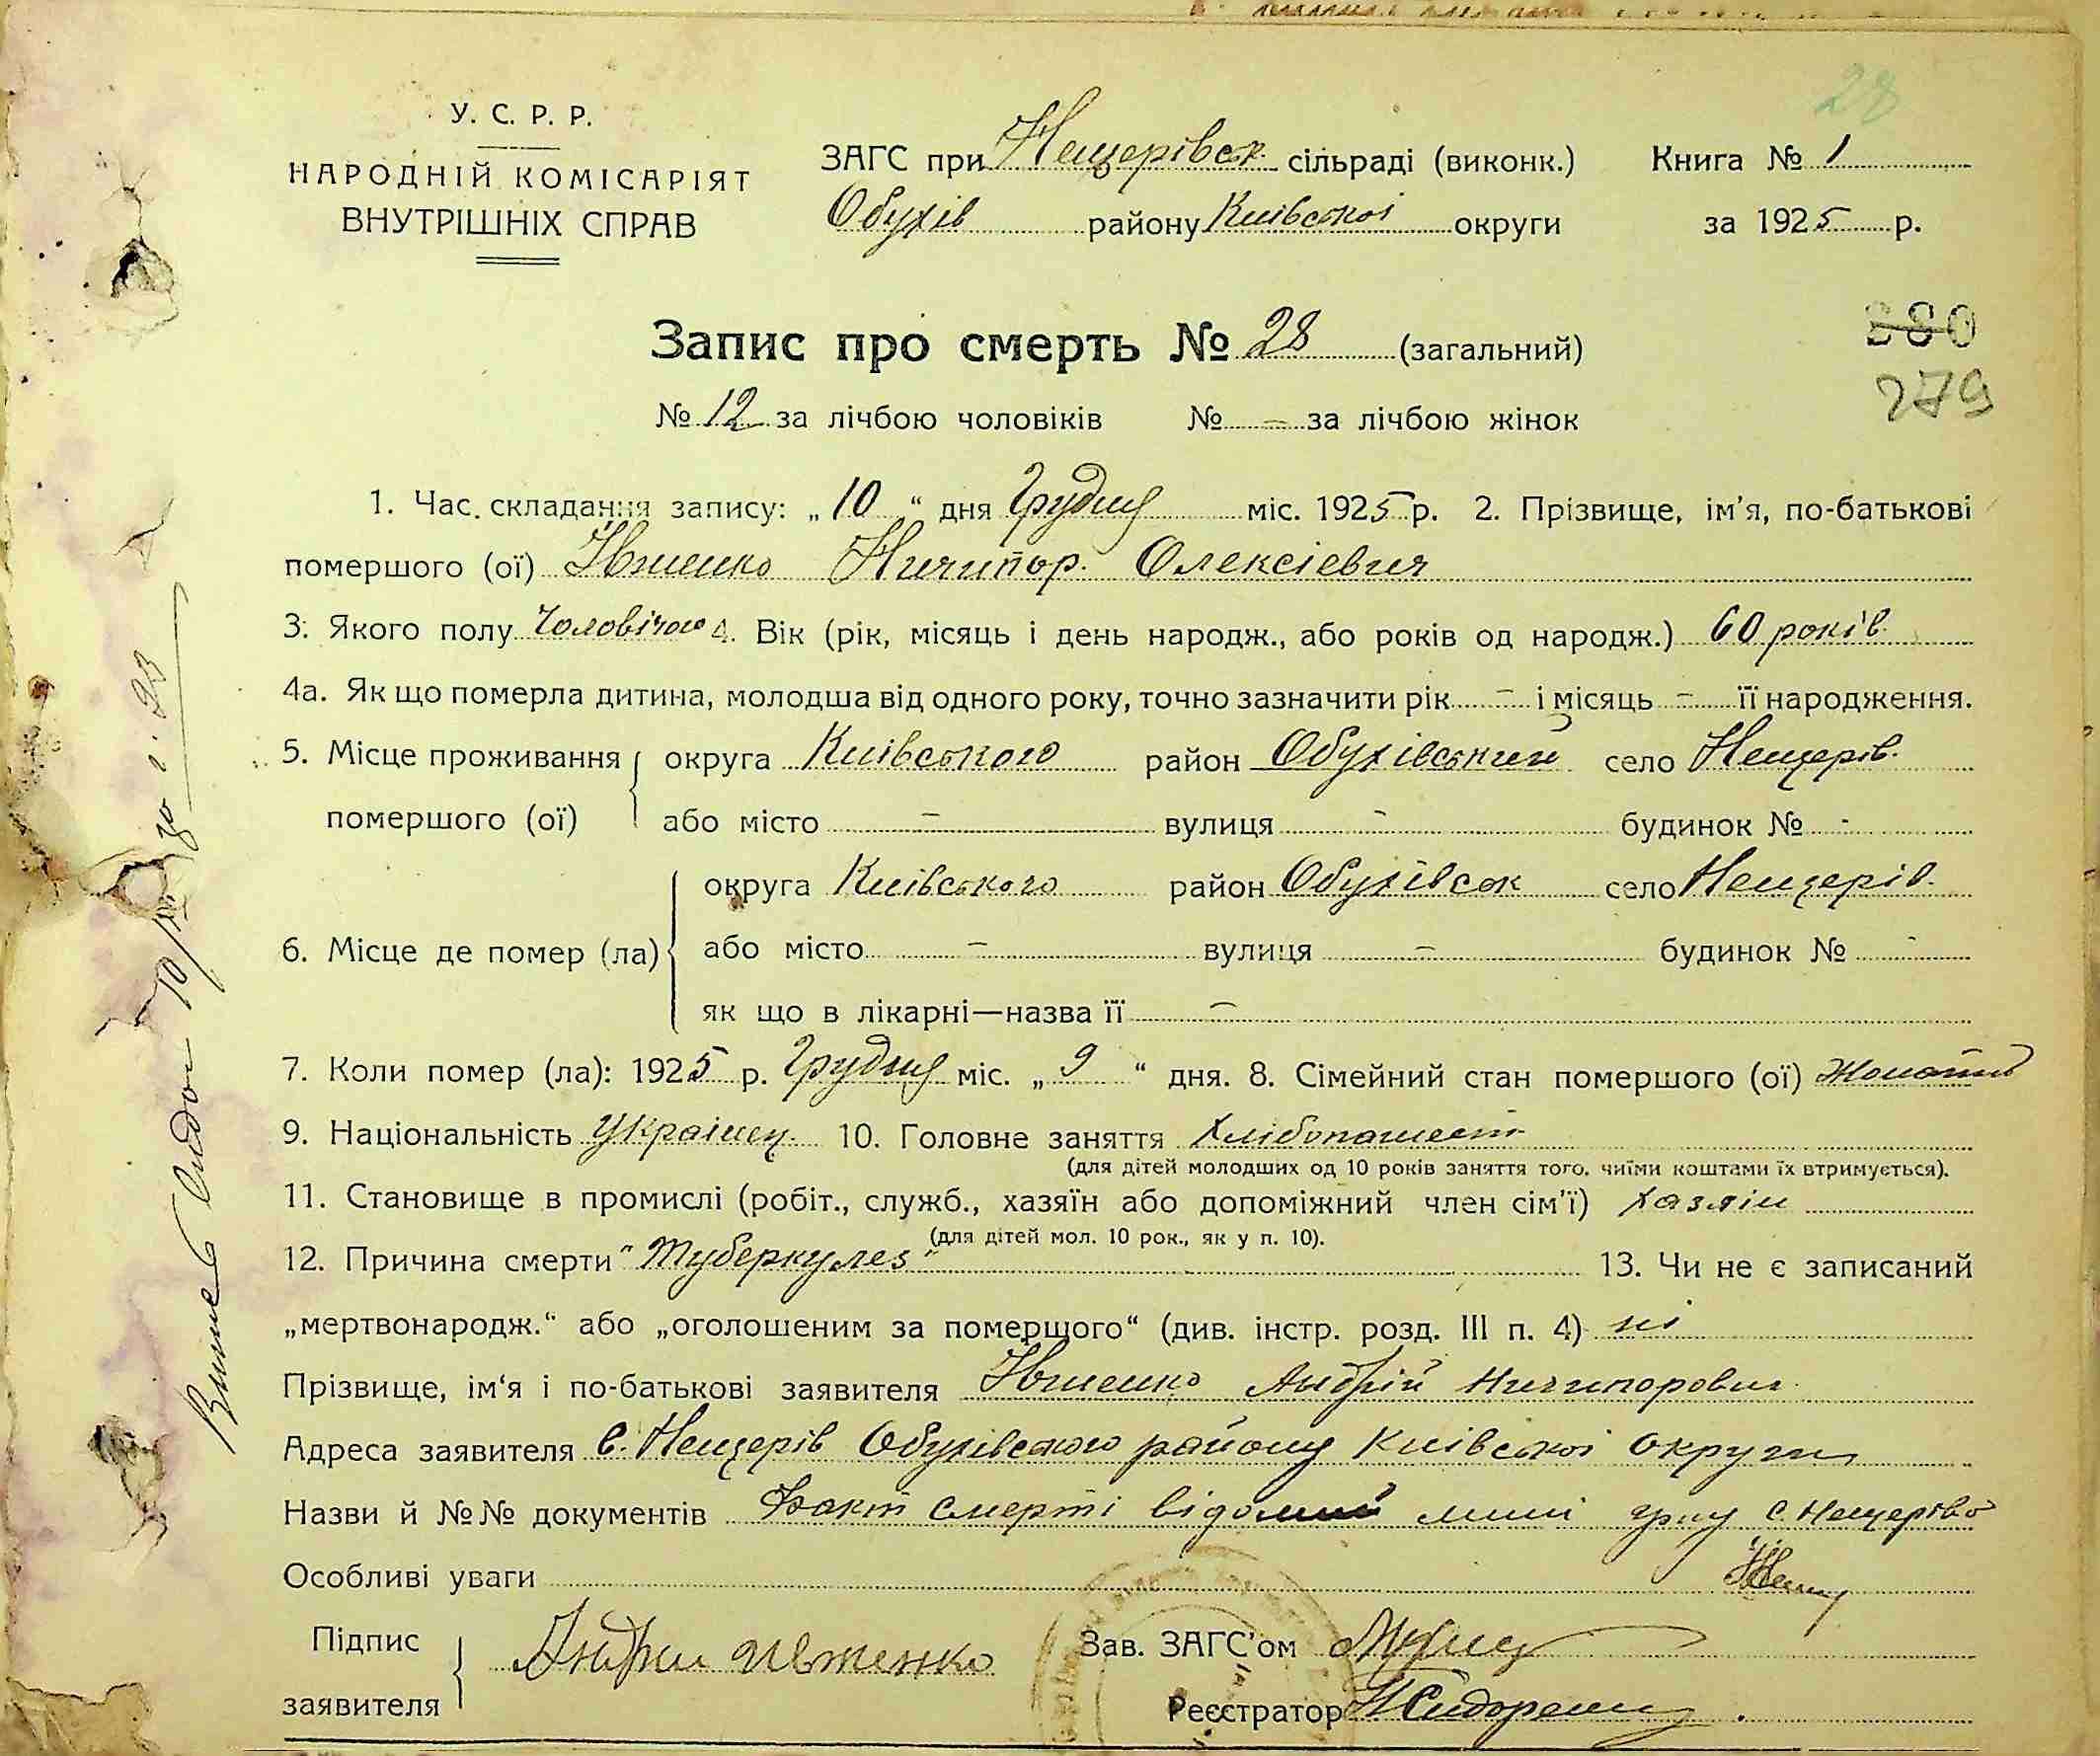 28
У. С. Р. Р.
НАРОДНІЙ КОМІСАРІЯТ
ВНУТРІШНІХ СПРАВ
ЗАГС при Нещерівськ. сільраді (виконк.)
Обухів району Київської округи
Книга № 1
за 1925 р.
Запис про смерть № 28 (загальний)
№ 12 за лічбою чоловіків № – за лічбою жінок
380
279
1. Час складання запису: „10“ дня Грудня міс. 1925 р. 2. Прізвище, ім'я, по-батькові
помершого (ої) Івженко Ничипор. Олексіевич
3. Якого полу Чоловічого 4. Вік (рік, місяць і день народж., або років од народж.) 60 років
4а. Як що померла дитина, молодша від одного року, точно зазначити рік – і місяць – її народження.
5. Місце проживання округа Київського район Обухівський село Нещерів.
помершого (ої) або місто – вулиця – будинок № -
округа Київського район Обухівськ село Нещерів.
6. Місце де помер (ла) або місто – вулиця – будинок № -
як що в лікарні—назва її –
7. Коли помер (ла): 1925 р. Грудня міс. „9“ дня. 8. Сімейний стан помершого (ої) Жонатий
9. Національність Украінец. 10. Головне заняття Хлібопашест
(для дітей молодших од 10 років заняття того, чиїми коштами їх втримується).
11. Становище в промислі (робіт., служб., хазяїн або допоміжний член сім'ї) хазяін
(для дітей мол. 10 рок., як у п. 10).
12. Причина смерти "Туберкулез" 13. Чи не є записаний
„мертвонародж.“ або „оголошеним за померщого“ (див. інстр. розд. III п. 4) ні
Прізвище, ім'я і по-батькові заявителя Івженко Андрій Ничипорович
Адреса заявителя с. Нещерів Обухівського району Київської округи
Назви й №№ документів Факт смерті відомий с. Нещерів
Особливі уваги
Підпис
заявителя
Зав. ЗАГС'ом
Реєстратор Сидоренко